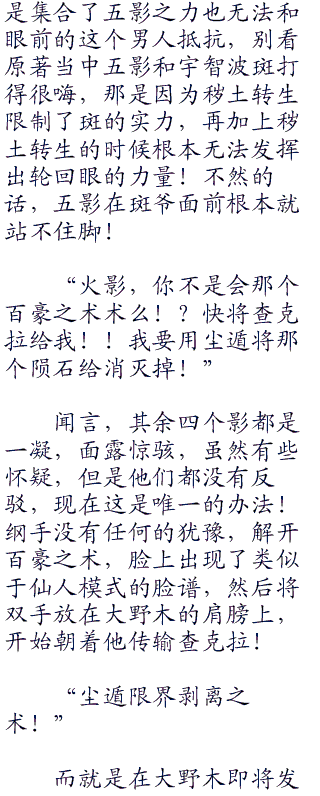 是集合了五影之力也无法和
眼前的这个男人抵抗，别看
原著当中五影和宇智波斑打
得很嗨，那是因为秽土转生
限制了斑的实力，再加上秽
土转生的时候根本无法发挥
出轮回眼的力量！不然的
话，五影在斑爷面前根本就
站不住脚！
“火影，你不是会那个
百豪之术术么！？快将查克
拉给我！！我要用尘遁将那
个陨石给消灭掉！”
闻言，其余四个影都是
一凝，面露惊骇，虽然有些
怀疑，但是他们都没有反
驳，现在这是唯一的办法！
纲手没有任何的犹豫，解开
百豪之术，脸上出现了类似
于仙人模式的脸谱，然后将
双手放在大野木的肩膀上，
开始朝着他传输查克拉！
“尘遁限界剥离之
术！”
而就是在大野木即将发